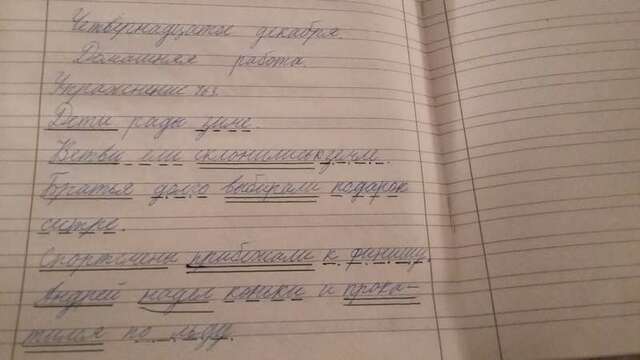 Четвернадцатое декабря.
Домашняя работа.
Упражнение 463.
Дети рады зиме.
Ветви ели склонились к земле.
Братья долго выбирали подарок
сестре.
Спортсмены прибежали к финишу.
Андрей надел коньки и прока-
тился по льду.